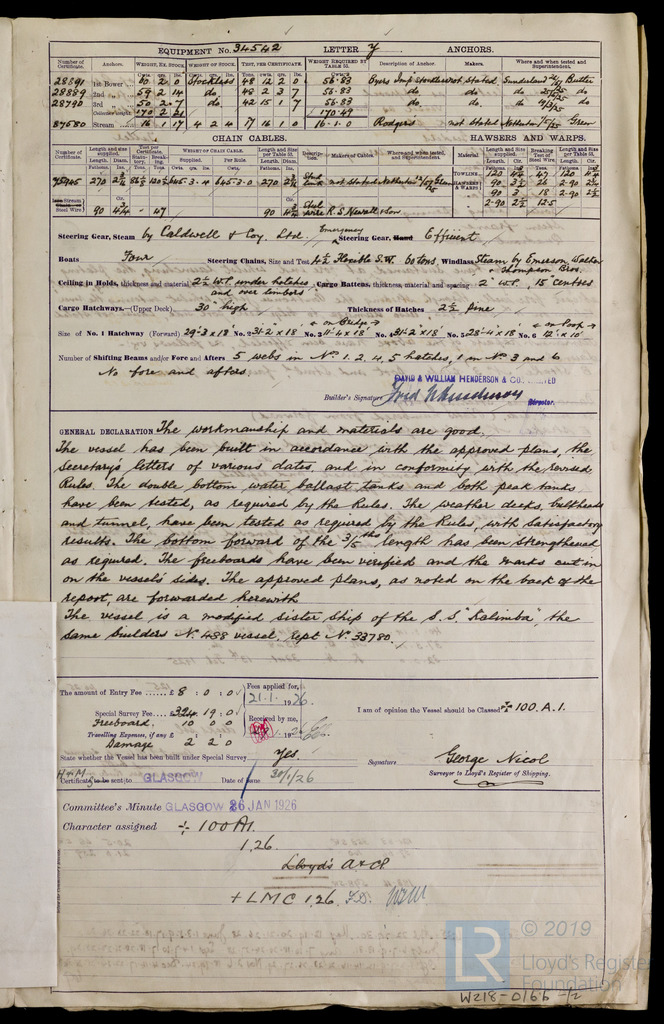 EQUIPMENT No. 34542 LETTER y ANCHORS.
Number of Certificate. Anchors. WEIGHT, EX. STOCK. WEIGHT OF STOCK. TEST, PER CERTIFICATE. WEIGHT REQUIRED BY TABLE 53. Description of Anchor. Makers. Where and when tested and Superintendent.
28891 1st Bower 60 2 0 Stockless 48 12 2 0 56.83 Byers Imp Stockless not Stated Sunderland Butler
28889 2nd 59 2 14 do 48 2 3 7 56.83 do do do
28790 3rd 50 2 7 do. 42 15 1 7 56.83 do do. do
Collective weight 170 2 21 170.49
87580 Stream 16 1 17 4 2 4 17 16 1 0 16.1.0 Rodgers not Stated Netherton Green
CHAIN CABLES. HAWSERS AND WARPS.
Number of Certificate. Length and size supplied. Test per Certificate. WEIGHT OF CHAIN CABLE. Length and size per Table 53. Description. Makers of Cables. Where and when tested, and Superintendent. Material. Length and size supplied. Breaking Test of Steel Wire. Length and size per Table 53.
75945 270 Stud Link not Stated Netherton
Steel Wire 90 47 90 Steel wire R. S. Newall & Son
TOWLINE 120 47 120
HAWSERS & WARPS 90 18 2-90
90 3 18 2-90
2-90 12.5
Steering Gear, Steam by Caldwell & Coy. Ltd. Emergency Steering Gear, Hand Efficient
Boats Four Steering Chains, Size and Test 4½ Flexible S.W. 60 tons, Windlass Steam by Emerson, Walker & Thompson Bros.
Ceiling in Holds, thickness and material 2½ W.P. under hatches and over limbers Cargo Battens, thickness, material and spacing 2" W.P., 15" centres
Cargo Hatchways.—(Upper Deck) 30" high Thickness of Hatches 2½ pine
Size of No. 1 Hatchway (Forward) 29'-3 x 18' No. 2 31'-2 x 18' No. 3 11'-4 x 18' on Bridge No. 4 31'-2 x 18' No. 5 28'-4 x 18' No. 6 12' x 10' on Poop
Number of Shifting Beams and/or Fore and Afters 5 webs in Nos 1. 2. 4. 5 hatches, 1 in Nos 3 and 6
No fore and afters.
DAVID & WILLIAM HENDERSON & CO. LIMITED
Builder's Signature Director.
GENERAL DECLARATION The workmanship and materials are good.
The vessel has been built in accordance with the approved plans, the
Secretary's letters of various dates, and in conformity with the revised
Rules. The double bottom water ballast tanks and both peak tanks
have been tested, as required by the Rules. The weather decks, bulkheads
and tunnel, have been tested as required by the Rules, with satisfactory
results. The bottom forward of the 3/5ths length has been strengthened
as required. The freeboards have been verified and the marks cut in
on the vessel's sides. The approved plans, as noted on the back of the
report, are forwarded herewith
The vessel is a modified sister ship of the S.S. "Kalimba", the
same builders No. 488 vessel, rept No. 33780.
The amount of Entry Fee £ 8 : 0 : 0
Special Survey Fee 324 19 : 0
Freeboard 10 0 0
Travelling Expenses, if any £
Damage 2 2 0
Fees applied for, 21.1.1926
Received by me,
I am of opinion the Vessel should be Classed 100 A.1.
State whether the Vessel has been built under Special Survey Yes.
Signature George Nicol
Surveyor to Lloyd's Register of Shipping.
H & M
Certificate to be sent to GLASGOW Date of issue 30/1/26
Committee's Minute GLASGOW 26 JAN 1926
Character assigned 100 A1.
1.26
Lloyd's A & CP.
+ LMC 1.26
© 2019
LR Lloyd's Register Foundation
W218-0166-1/2